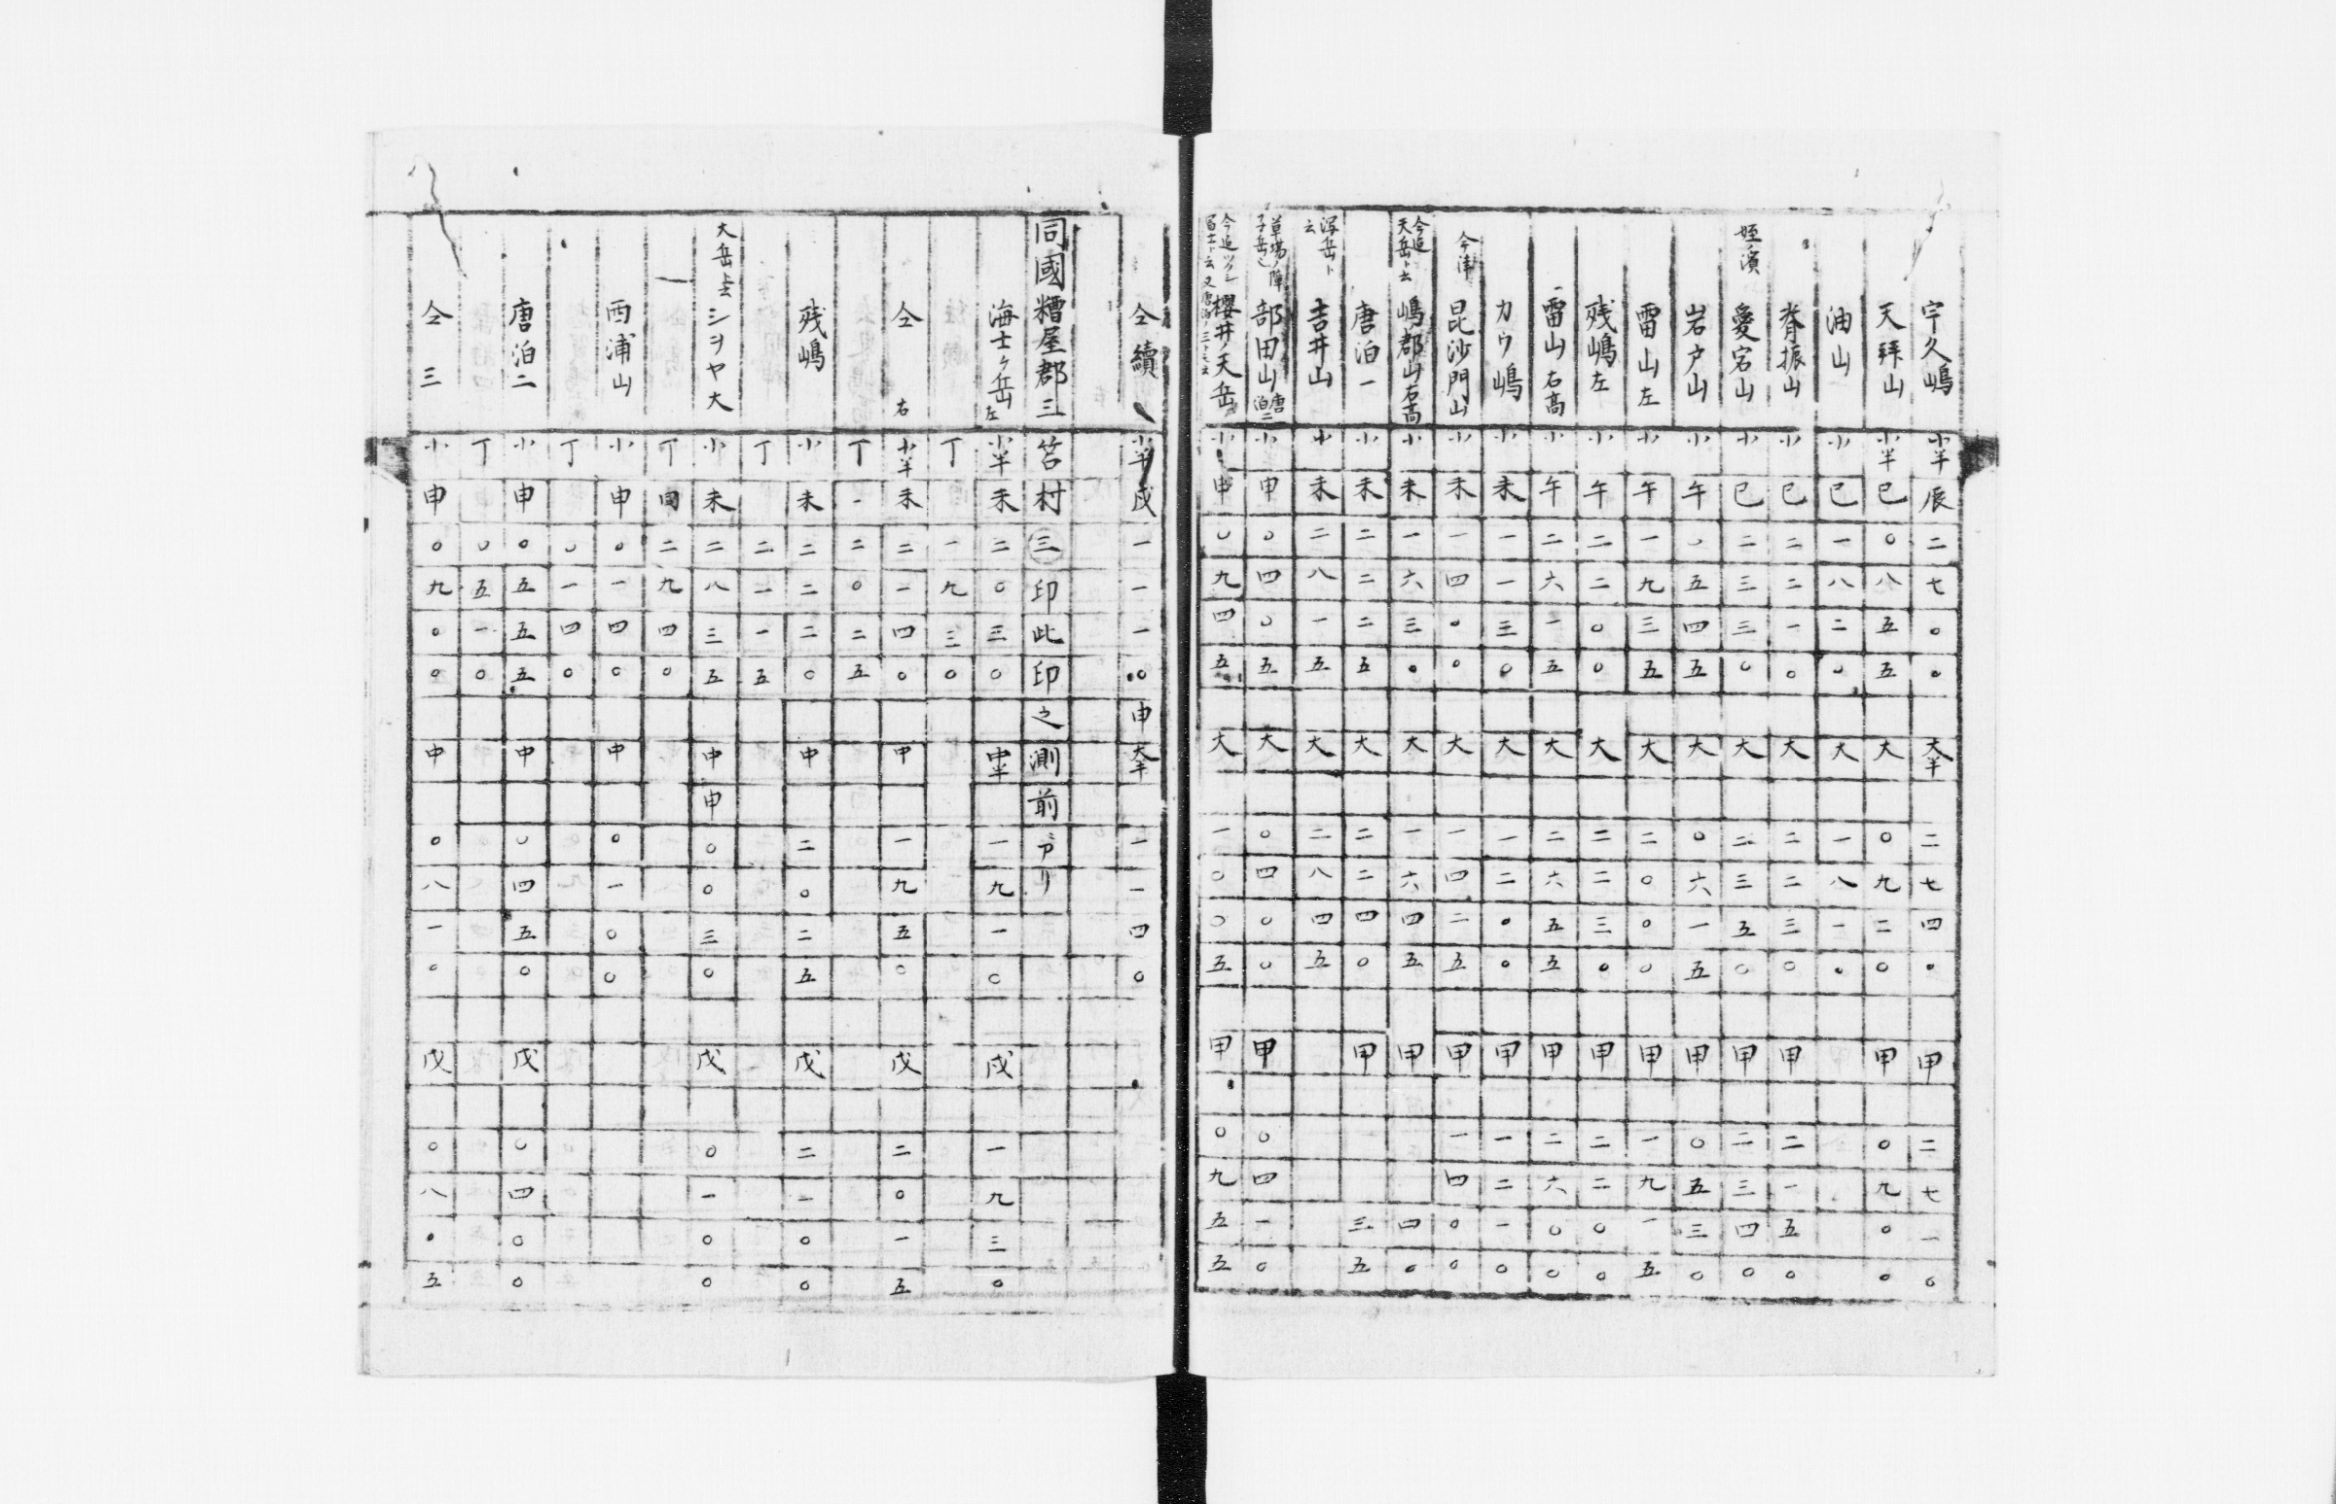 宇久嶋 小半 辰 二 七 〇 〇 大半 二 七 四 〇 甲 二 七 一 〇
天拜山 小半 巳 〇 八 五 五 大 〇 九 二 〇 甲 〇 九 〇 〇
油山 小 巳 一 八 二 〇 大 一 八 一 〇
脊振山 小 巳 二 二 一 〇 大 二 二 三 〇 甲 二 一 五 〇
姪濱 愛宕山 小 巳 二 三 三 〇 大 二 三 五 〇 甲 二 三 四 〇
岩戸山 小 午 〇 五 四 五 大 〇 六 一 五 甲 〇 五 三 〇
雷山左 小 午 一 九 三 五 大 二 〇 〇 〇 甲 一 九 一 五
残嶋左 小 午 二 二 〇 〇 大 二 二 三 〇 甲 二 二 〇 〇
雷山右高 小 午 二 六 一 五 大 二 六 五 五 甲 二 六 〇 〇
カウ嶋 小 未 一 一 三 〇 大 一 二 〇 〇 甲 一 二 一 〇
今津 昆沙門山 小 未 一 四 〇 〇 大 一 四 二 五 甲 一 四 〇 〇
今迠天岳ト云 嶋郡山右高 小 未 一 六 三 〇 大 一 六 四 五 甲 四 〇
唐泊一 小 未 二 二 二 五 大 二 二 四 〇 甲 三 五
浮岳ト云 吉井山 小 未 二 八 一 五 大 二 八 四 五
草場ノ障子岳也 部田山 唐泊二 小 申 〇 四 〇 五 大 〇 四 〇 〇 甲 〇 四 一 〇
櫻井天岳 小 申 〇 九 四 五 大 一 〇 〇 五 甲 〇 九 五 五
仝續 小半 戌 一 一 一 〇 申 大半 一 一 四 〇
同國糟屋郡三笘村㊂印此印之測前ニアリ
海士ヶ岳左 小半 未 二 〇 三 〇 中半 一 九 一 〇 戊 一 九 三 〇
丁 一 九 三 〇
仝 右 小半 未 二 一 四 〇 中 一 九 五 〇 戊 二 〇 一 五
丁 一 二 〇 二 五
残嶋 小 未 二 二 二 〇 中 二 〇 二 五 戊 二 一 〇 〇
丁 二 一 一 五
大岳ト云 シヲヤ大 小 未 二 八 三 五 中 申 〇 〇 三 〇 戊 〇 一 〇 〇
一 丁 同 二 九 四 〇
西浦山 小 申 〇 一 四 〇 中 〇 一 〇 〇
丁 〇 一 四 〇
唐泊二 小 申 〇 五 五 五 中 〇 四 五 〇 戊 〇 四 〇 〇
丁 〇 五 一 〇
仝三 小 申 〇 九 〇 〇 中 〇 八 一 〇 戊 〇 八 〇 五